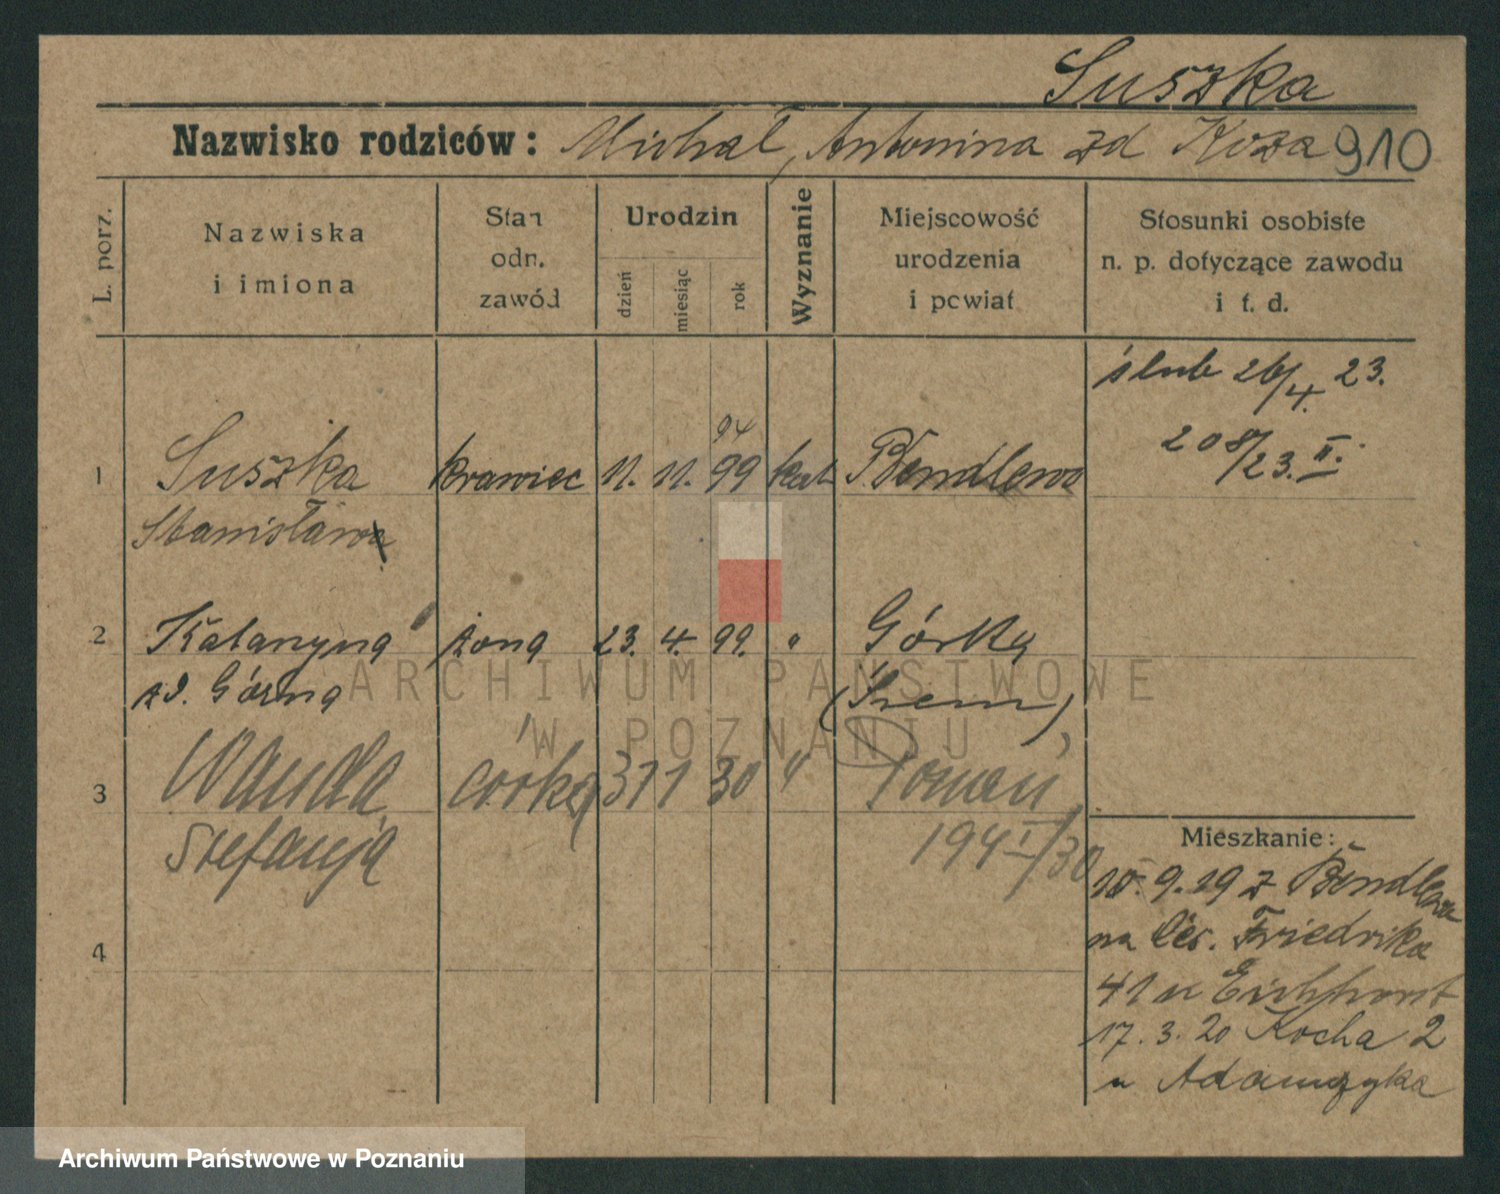 Suszka
Nazwisko rodziców: Michał, Antonina zd Koza 910
L. porz.
Nazwiska
i imiona
Stan
odn.
zawód
Urodzin
dzień
miesiąc
rok
Wyznanie
Miejscowość
urodzenia
i powiat
Stosunki osobiste
n. p. dotyczące zawodu
i t. d.
ślub 26/4. 23.
208/23. II.
94
1 Suszka krawiec 11. 11. 99 kat Bendlewo
Stanisław
2 Katarzyna żona 23. 4. 99. " Górka
zd. Górna (Śrem)
3 Wanda córka 31 1 30 " Poznań
Stefanja 194 I/30
4
Mieszkanie:
15.9.19 z Bendlewa
na Ces. Friedrika
41 u Eichhorst
17.3.20 Kocha 2
u Adamczyka
ARCHIWUM PAŃSTWOWE
W POZNANIU
Archiwum Państwowe w Poznaniu